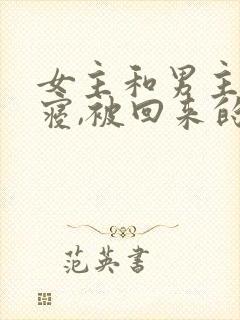 女主和男主
寝,被回来的
范英书